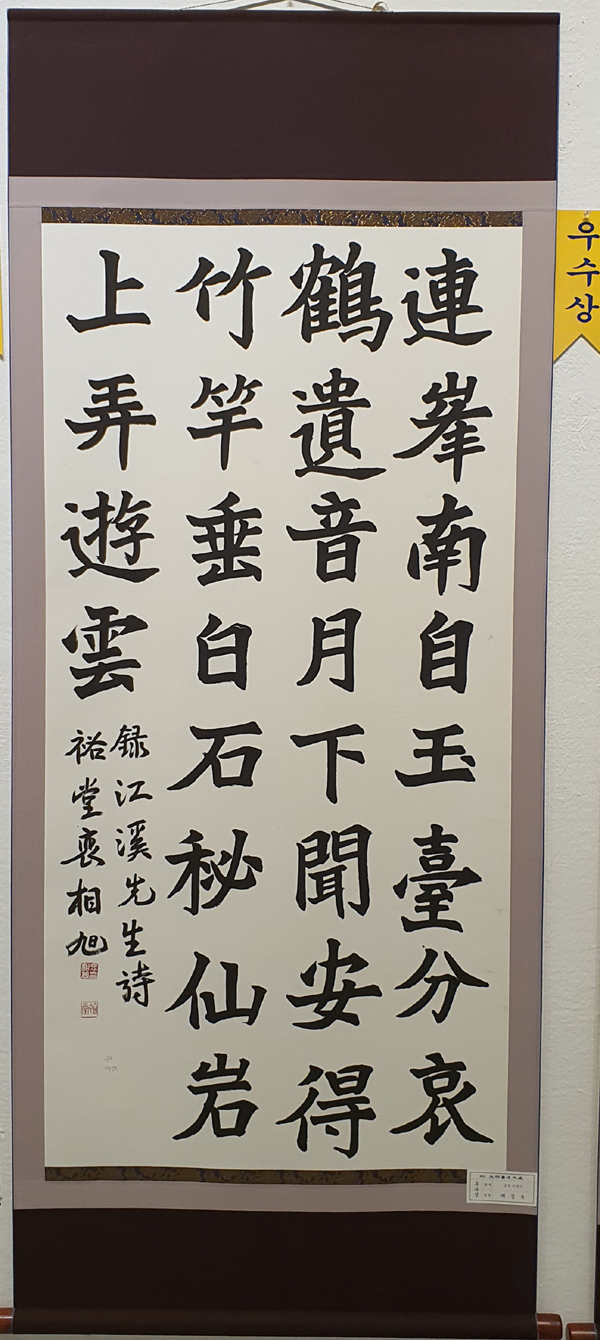 連峯南自玉臺分哀
鶴遺音月下聞安得
竹竿垂白石秘仙岩
上弄遊雲
録江溪先生詩
裕堂裵相旭
우수상
배상욱